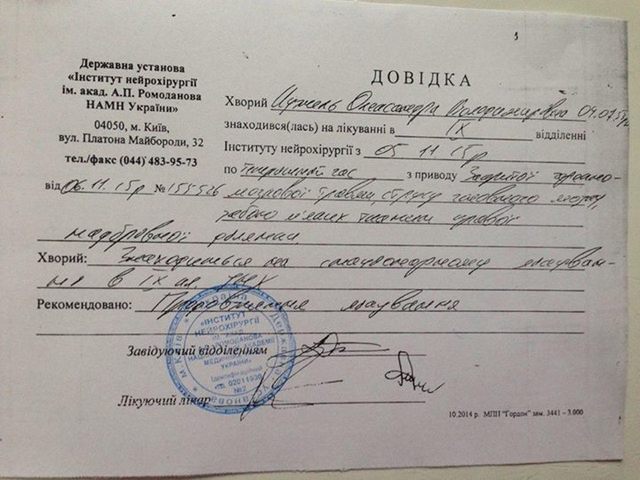 Державна установа
«Інститут нейрохірургії
ім. акад. А.П. Ромоданова
НАМН України»
04050, м. Київ,
вул. Платона Майбороди, 32
тел./факс (044) 483-95-73
від 06.11.15р № 155526
ДОВІДКА
Хворий Олександра Володимирівна
знаходився(лась) на лікуванні в IX відділенні
Інституту нейрохірургії з 05 11. 15р
по теперішній час з приводу Закритої черепно-
мозкової травми, струсу головного мозку,
забою м'яких тканин правої
надбрівної ділянки
Хворий: Знаходиться на стаціонарному лікуван-
ні в IX
Рекомендовано: Продовження лікування
Завідуючий відділенням
Лікуючий лікар
«ІНСТИТУТ
НЕЙРОХІРУРГІЇ
УКРАЇНИ»
10.2014 р. МПП "Гордон" зам. 3441 – 3.000